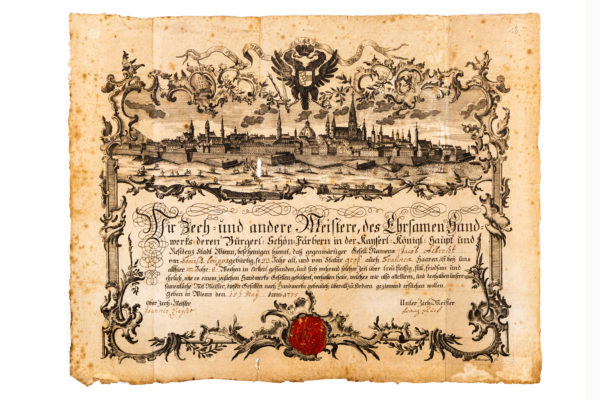 Wir Zech- und andere Meistere, des Ehrsamen Hand
wercks deren Bürgerl: Schön-Färbern in der Kayserl: Königl: Haupt und
Residenz Stadt Wienn, bescheinigen hiemit, daß gegenwärtiger Gesell Namens
von gebürtig, so 23 Jahr alt, und von Statur groß auch Haaren, ist bey uns
allhier Jahr 8 Wochen in Arbeit gestanden, und sich während solcher Zeit über treu, fleißig, still, friedsam und
ehrlich, wie es einem jeglichen Handwercks-Gesellen gebühret, verhalten habe, welches wir also attestiren, und deßhalben unsere
sammentliche Mit-Meister, diesen Gesellen nach Handwercks-gebrauch überall zu fördern, geziemend ersuchen wollen.
Geben in Wienn den May Anno
Ober Zech-Meister
Unter Zech-Meister